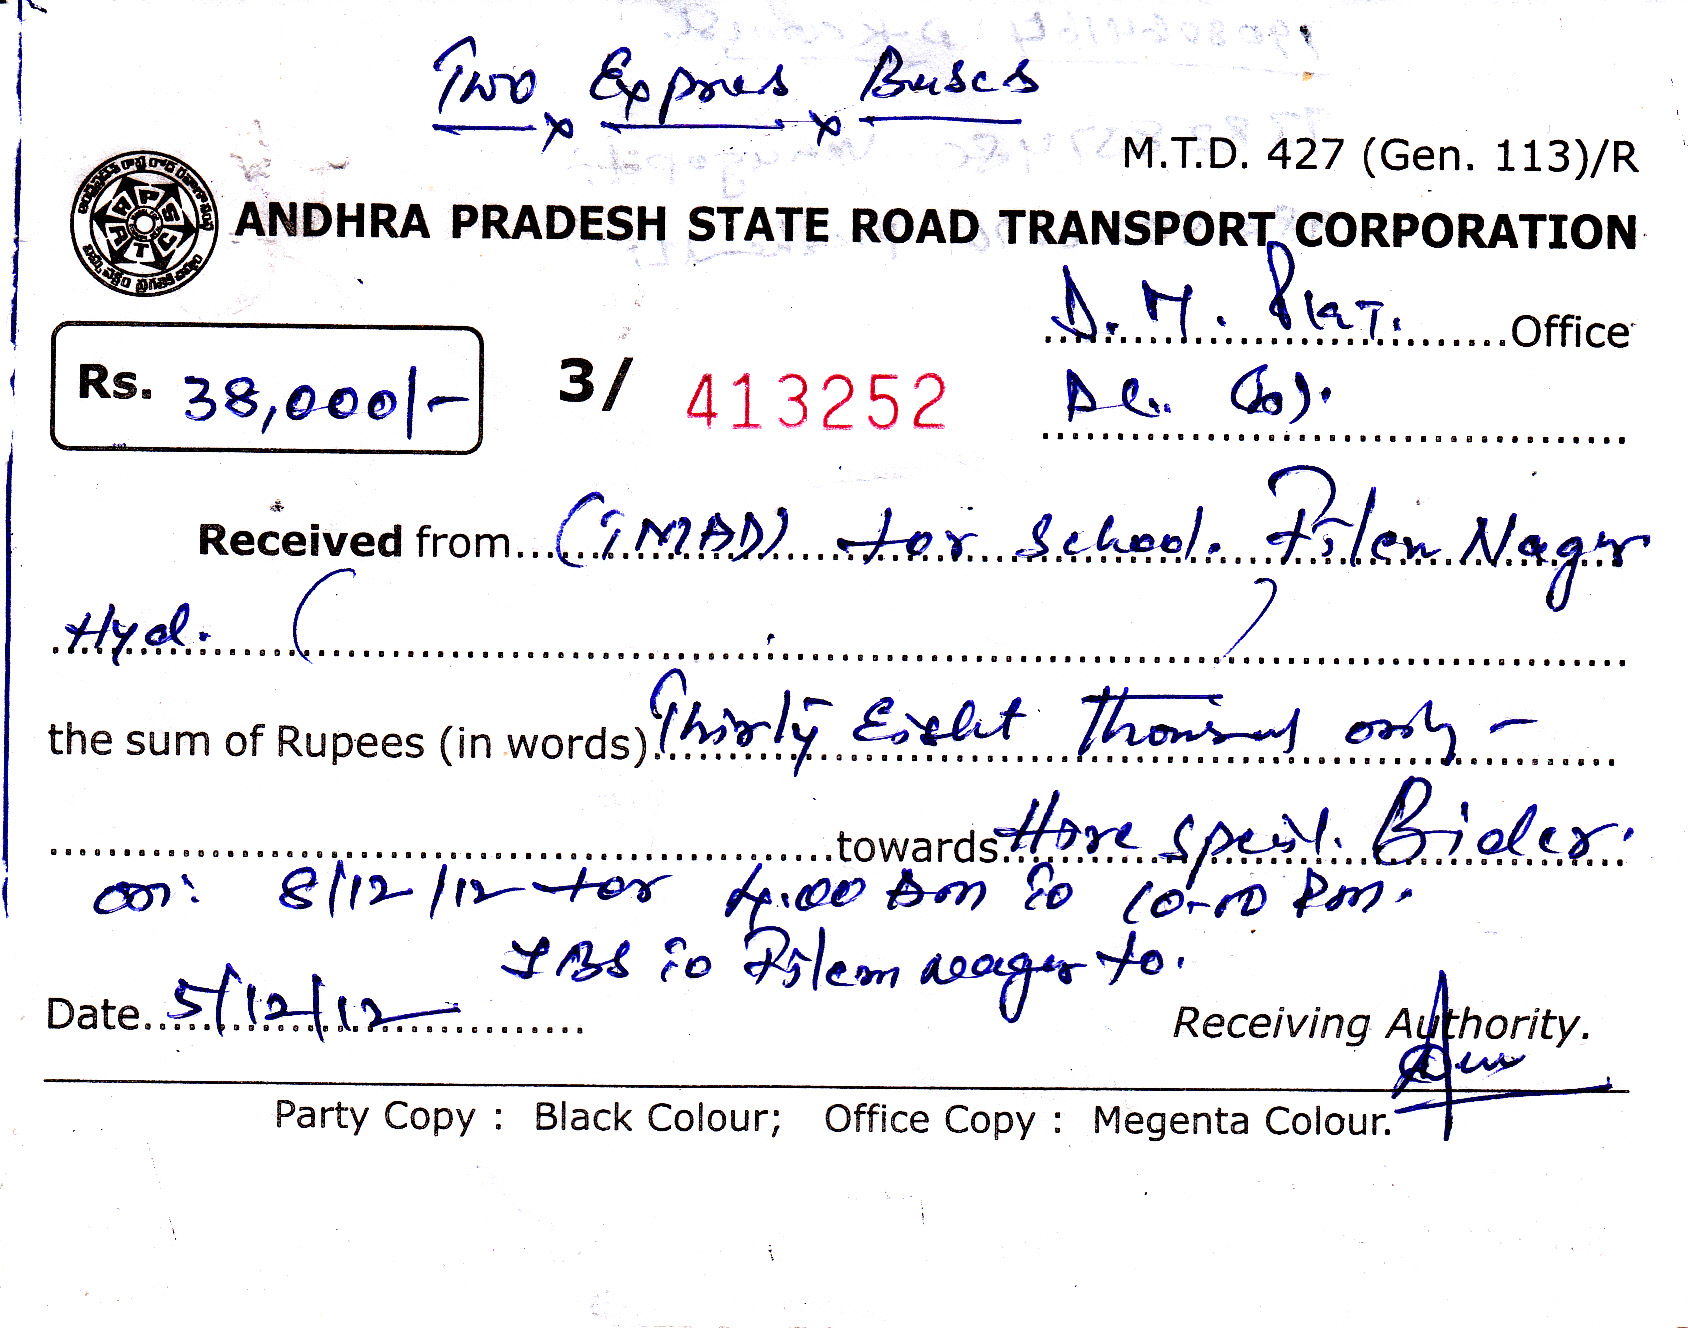 Two Expres Buses
M.T.D. 427 (Gen. 113)/R
ANDHRA PRADESH STATE ROAD TRANSPORT CORPORATION
D. M. Office
Rs. 38,000/- 3/ 413252
Received from (IMAD) for School. Filem Nager
Hyd. ( )
the sum of Rupees (in words) Thirty Eight Thousand only -
towards Hire Bider.
on: 8/12/12 for 4.00 Am to 10-00 Pm.
to Filem nager to.
Date 5/12/12
Receiving Authority.
Party Copy : Black Colour; Office Copy : Megenta Colour.